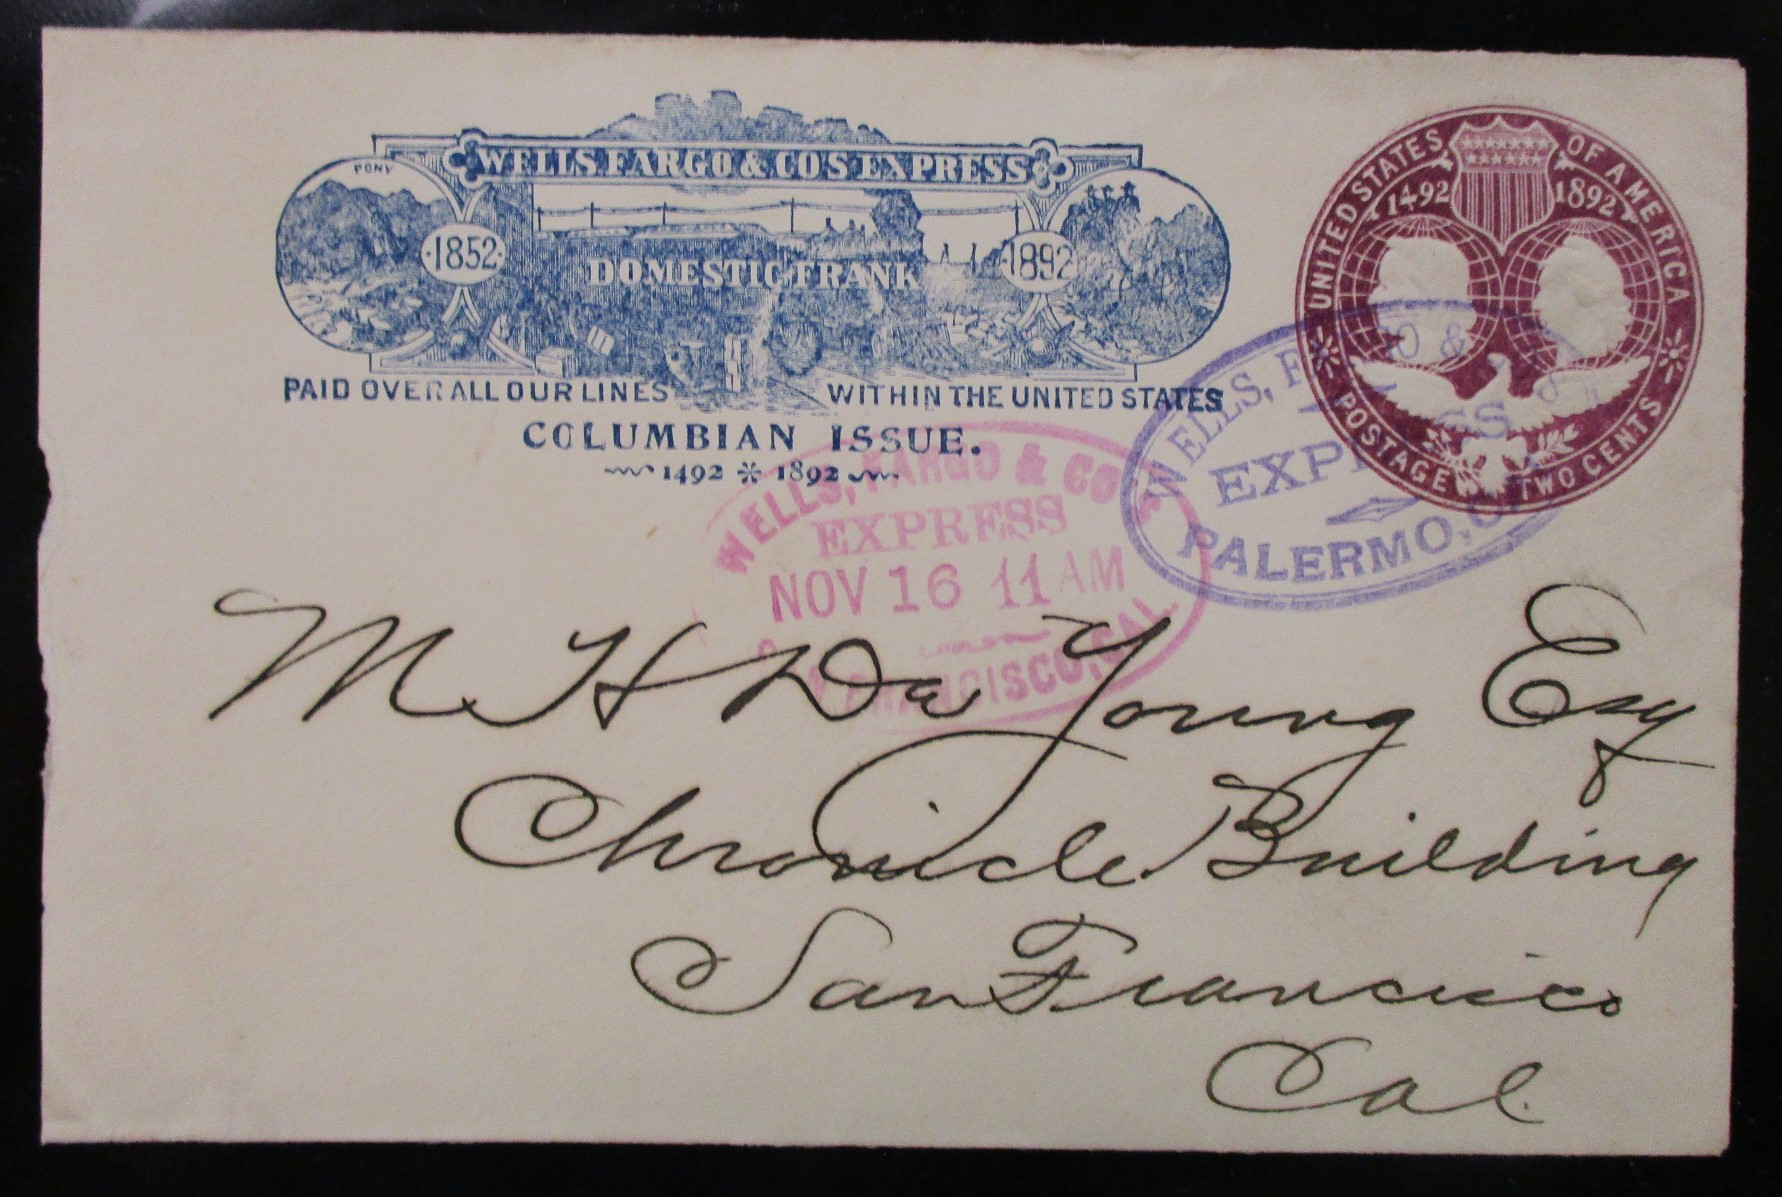 WELLS, FARGO & CO'S EXPRESS
PONY
1852
1892
DOMESTIC FRANK
PAID OVER ALL OUR LINES WITHIN THE UNITED STATES
COLUMBIAN ISSUE.
1492 1892
UNITED STATES OF AMERICA
1492 1892
POSTAGE TWO CENTS
WELLS, F O & 
EXPRESS
PALERMO, C
WELLS, FARGO & CO
EXPRESS
NOV 16 11 AM
FRANCISCO, CAL.
M H De Young Esq
Chronicle Building
San Francisco
Cal.